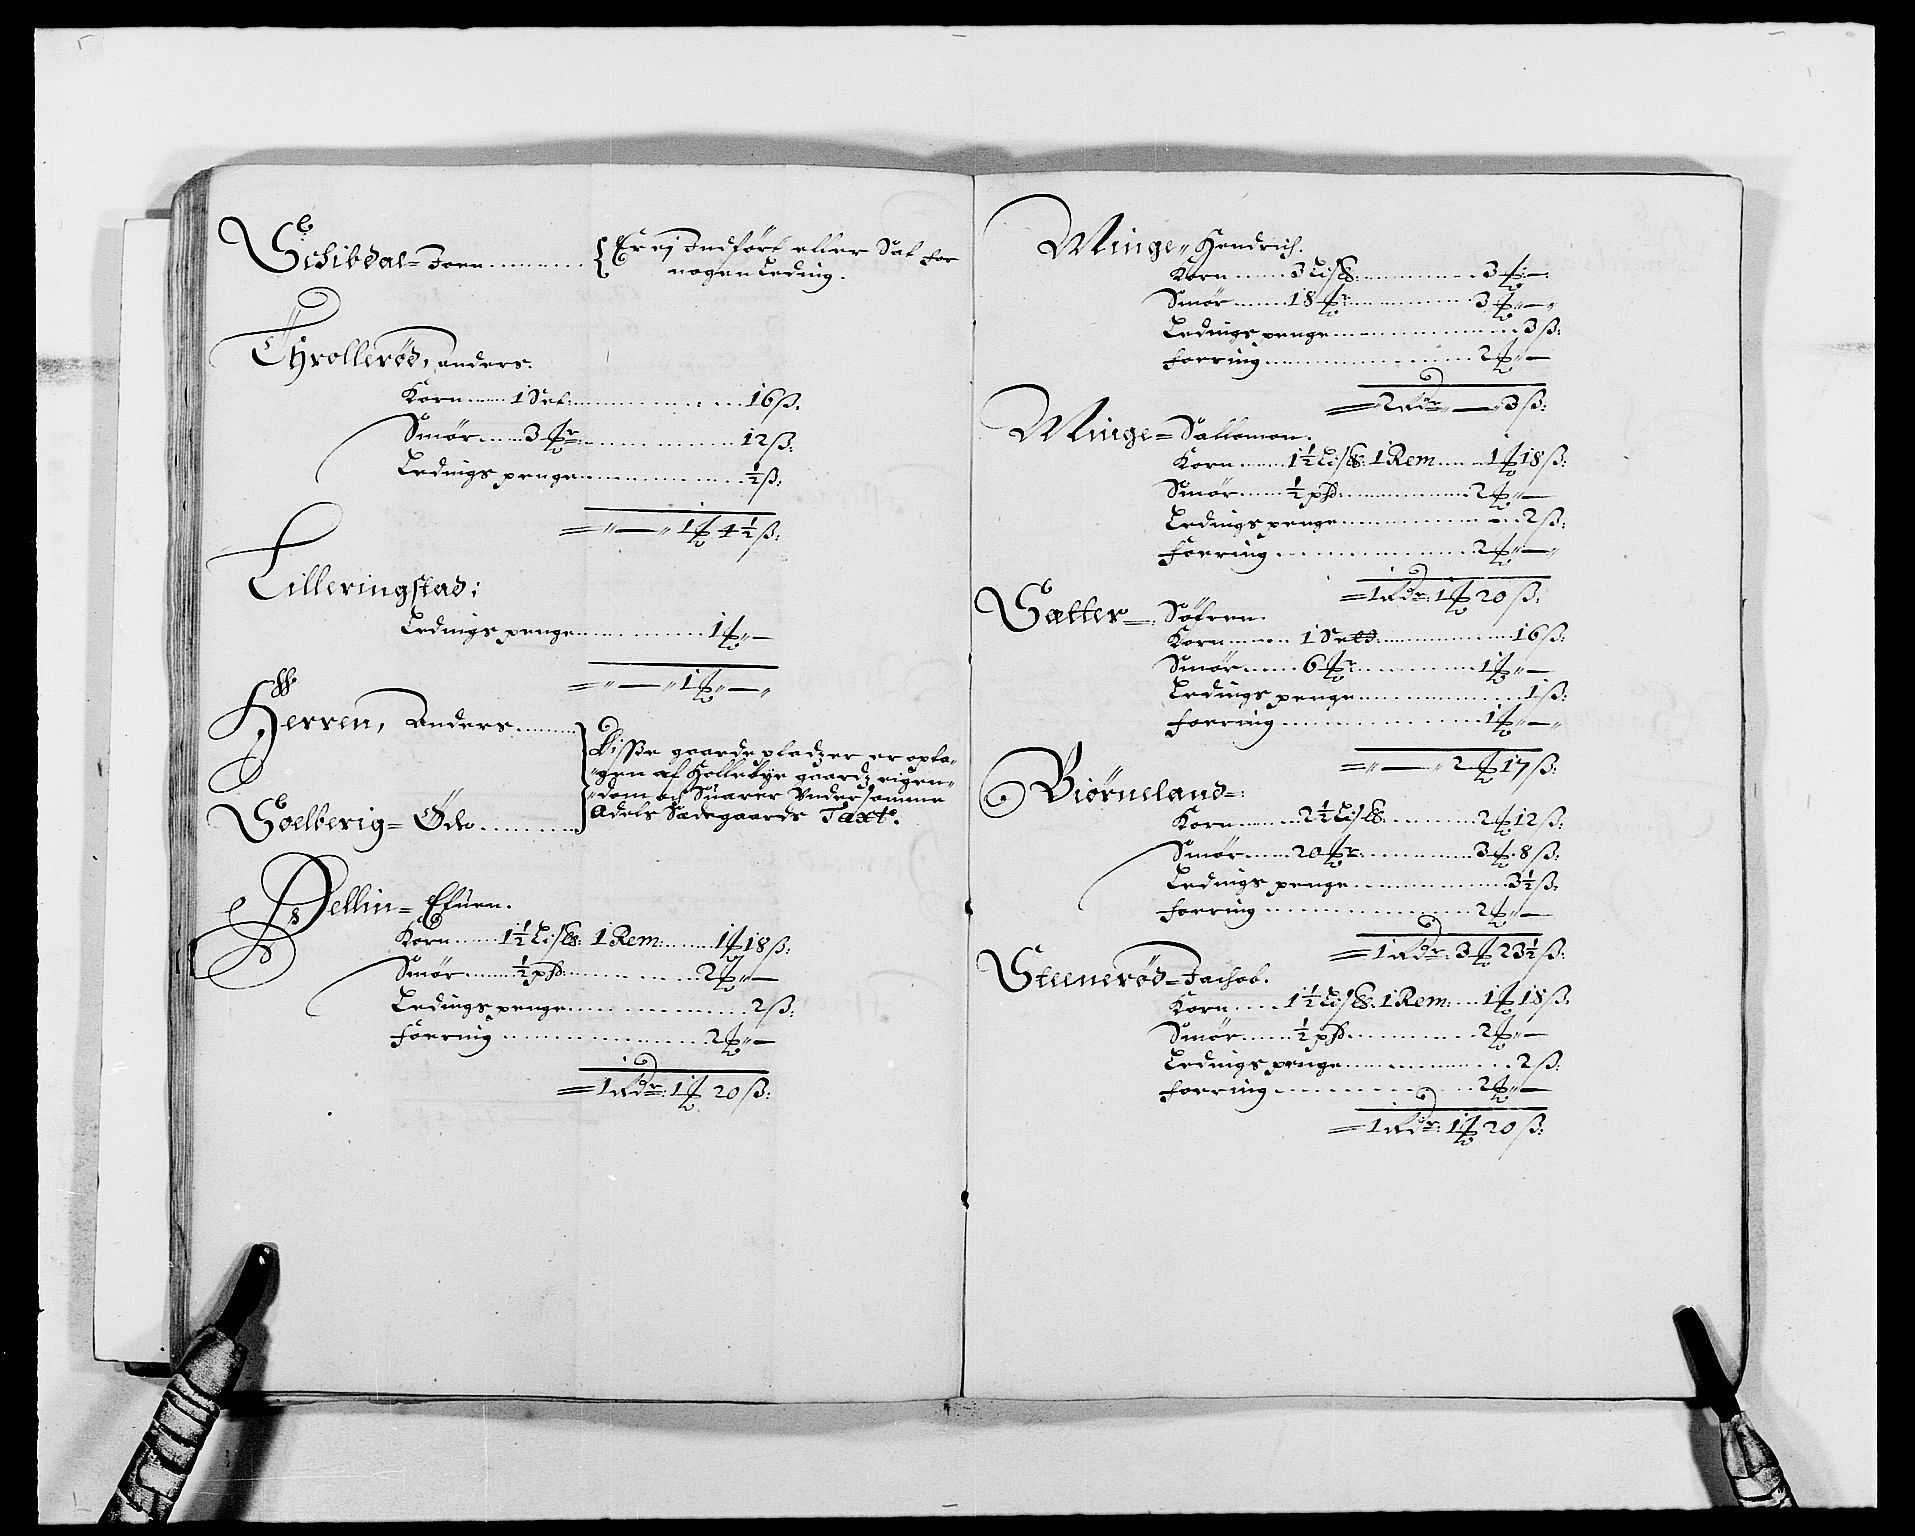 Schibdal= Joen .......... { Er ej Indført eller Sat for
nogen Leding.
Throllerød, anders.
Korn ...... 1 Set: .......... 16 ß.
Smør ...... 3 ℔r: .......... 12 ß:
Ledings penge .......... ½ ß:
= " — " 1 ℔ 4½ ß:
Lilleringstad:
Ledings penge .......... 1 ℔ " —
= " — " 1 ℔ " — "
Herren, Anders ........
Disse gaarde pladzer er opta-
"gen af Hollebye gaardz eigen-
"dom og Suarer Under samme
Adels Sædegaards Taxt.
Soelberig= Ødw ..........
Pellin= Efuen.
Korn ...... 1½ Lisß: 1 Rem: ...... 1 ℔ 18 ß:
Smør ...... ½ pd: .......... 2 ℔ " —
Ledings penge .......... 2 ß:
Foering .......... 2 ℔ " —
= 1 Rdr: 1 ℔ 20 ß:
Minge " Hendrich.
Korn ...... 3 Lisß: .......... 3 ℔: —
Smør ...... 18 ℔r .......... 3 ℔ " — "
Ledings penge .......... 3 ß:
Foering .......... 2 ℔ " —
= 2 Rdr " — " 3 ß:
Minge= Sallomon.
Korn ...... 1½ Lisß: 1 Rem ...... 1 ℔ 18 ß:
Smør ...... ½ pd: .......... 2 ℔ " —
Ledings penge .......... 2 ß:
Foering .......... 2 ℔ " — "
= 1 Rdr: 1 ℔ 20 ß:
Sætter=: Søfren.
Korn ...... 1 Setd .......... 16 ß:
Smør ...... 6 ℔r .......... 1 ℔ " —
Ledings penge .......... 1 ß:
Foering .......... 1 ℔ " — "
= " — " 2 ℔ 17 ß:
Biørneland=:
Korn ...... 2½ Lisß: .......... 2 ℔ 12 ß:
Smør ...... 20 ℔r: .......... 3 ℔ 8 ß:
Ledings penge .......... 3½ ß.
Foering .......... 2 ℔ " —
= 1 Rdr: 3 ℔ 23½ ß:
Steenerød= Jachob.
Korn ...... 1½ Lisß: 1 Rem: ...... 1 ℔ 18 ß:
Smør ...... ½ pd: .......... 2 ℔ " —
Ledings penge .......... 2 ß:
Foering .......... 2 ℔ " —
= 1 Rdr: 1 ℔ 20 ß: